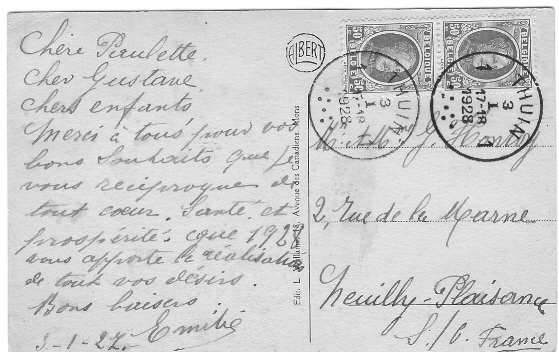 Chère Paulette.
Cher Gustave
Chers enfants
Merci à tous pour vos
bons souhaits que je
vous réciproque de
tout cœur. Santé et
prospérité, que 1928
vous apporte la réalisation
de tout vos désirs.
Bons baisers.
3-1-27. Emilie
ALBERT
Edit. L. Avenue des Canadiens, Mons
BELGIQUE
50 BELGIE 50
BELGIQUE
50 BELGIE 50
THUIN 1
3
1
17-18
1928
THUIN 1
3
1
17-18
1928
M. & Mme G.
2, Rue de la Marne
Neuilly-Plaisance
S/O. France